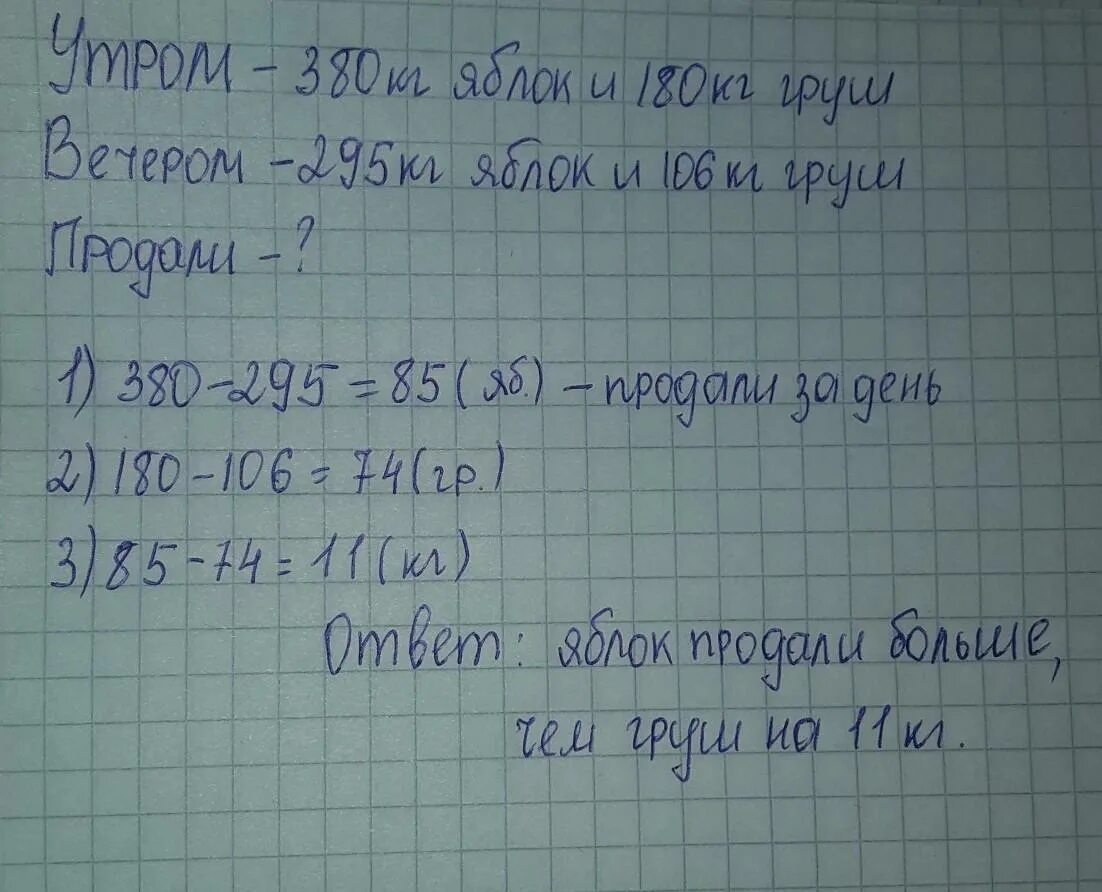 Утром – 380кг яблок и 180кг груш
Вечером – 295кг яблок и 106кг груш
Продали – ?
1) 380 – 295 = 85 ( яб.) – продали за день
2) 180 – 106 = 74 (гр.)
3) 85 – 74 = 11 (кг)
Ответ: яблок продали больше,
чем груш на 11 кг.